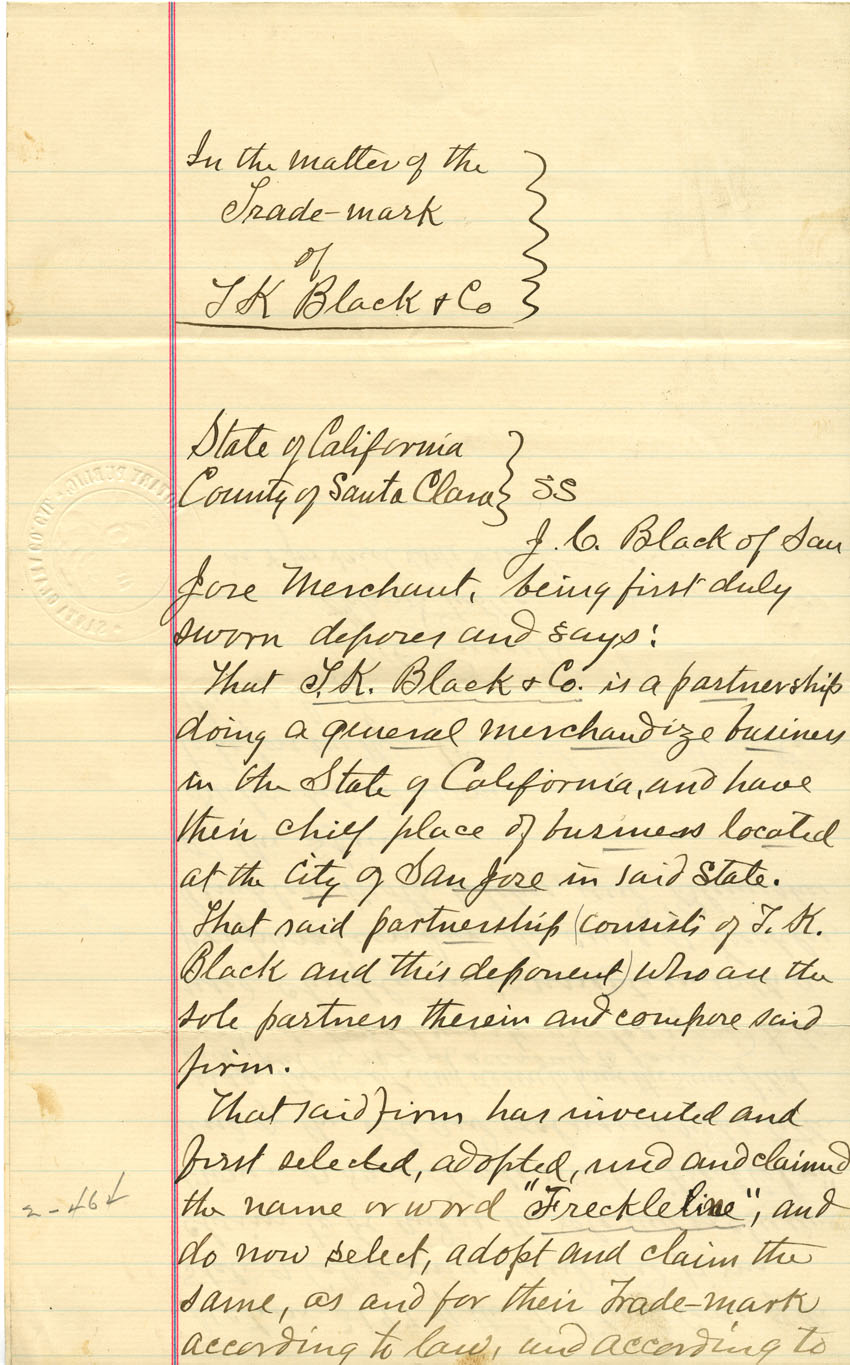 In the matter of the
Trade-mark
of
T K Black & Co
State of California
County of Santa Clara } SS
J. C. Black of San
Jose Merchant, being first duly
sworn deposes and says:
That T. K. Black & Co. is a partnership
doing a general merchandize business
in the State of California, and have
their chief place of business located
at the City of San Jose in said State.
That said partnership (consists of T. K.
Black and this deponent) who are the
sole partners therein and compose said
firm.
That said firm has invented and
first selected, adopted, used and claimed
the name or word "Freckleline", and
do now select, adopt and claim the
same, as and for their Trade-mark
according to law, and according to